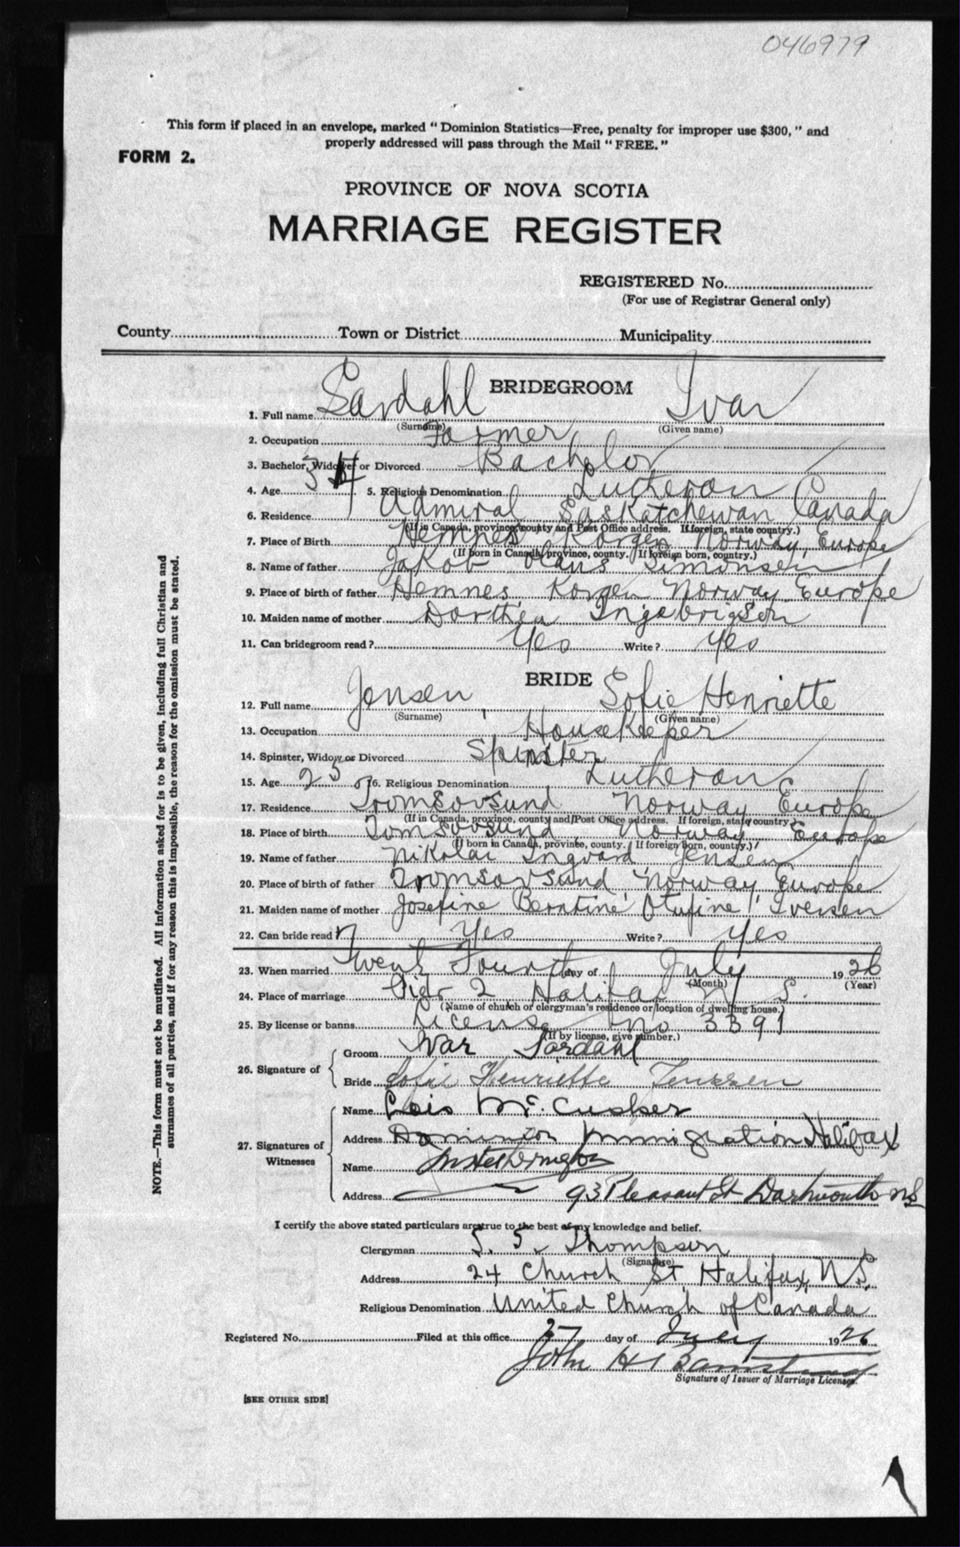 046979
This form if placed in an envelope, marked "Dominion Statistics—Free, penalty for improper use $300," and
properly addressed will pass through the Mail "FREE."
FORM 2.
PROVINCE OF NOVA SCOTIA
MARRIAGE REGISTER
REGISTERED No.
(For use of Registrar General only)
County Town or District Municipality
BRIDEGROOM
1. Full name Sardahl Ivar
(Surname) (Given name)
2. Occupation Farmer
3. Bachelor, Widower or Divorced Bachelor
4. Age 34 5. Religious Denomination Lutheran
6. Residence Admiral Saskatchewan Canada
(If in Canada, province, county and Post Office address. If foreign, state country.)
7. Place of Birth Hemnes Korgen Norway, Europe
(If born in Canada, province, county. If foreign born, country.)
8. Name of father Jakob Olaus Simonsen
9. Place of birth of father Hemnes Korgen Norway Europe
10. Maiden name of mother Dorthea Ingebrigsen
11. Can bridegroom read? Yes Write? Yes
BRIDE
12. Full name Jensen, Sofie Henriette
(Surname) (Given name)
13. Occupation Housekeeper
14. Spinster, Widow or Divorced Spinster
15. Age 25 16. Religious Denomination Lutheran
17. Residence Tromsoysund Norway Europe
(If in Canada, province, county and Post Office address. If foreign, state country.)
18. Place of birth Tomsoysund Norway Europe
(If born in Canada, province, county. If foreign born, country.)
19. Name of father Nikolai Ingvard Jensen
20. Place of birth of father Tromsoysund Norway Europe
21. Maiden name of mother Josefine Beratine Iversen
22. Can bride read? Yes Write? yes
23. When married Twent Fourth day of July 1926
(Month) (Year)
24. Place of marriage Pier 2 Halifax N. S.
(Name of church or clergyman's residence or location of dwelling house.)
25. By license or banns License no 3391
(If by license, give number.)
26. Signature of
Groom Ivar Sardahl
Bride Sofie Henriette Jenssen
27. Signatures of Witnesses
Name Lois McCusker
Address Dominion Immigration Halifax
Name
Address 93 Pleasant St Dartmouth NS
I certify the above stated particulars are true to the best of my knowledge and belief.
Clergyman S. Thompson
(Signature)
Address 24 Church St Halifax, N.S.
Religious Denomination United Church of Canada
Registered No. Filed at this office 27 day of July 1926
John H
Signature of Issuer of Marriage Licenses.
[SEE OTHER SIDE]
NOTE.—This form must not be mutilated. All information asked for is to be given, including full Christian and
surnames of all parties, and if for any reason this is impossible, the reason for the omission must be stated.